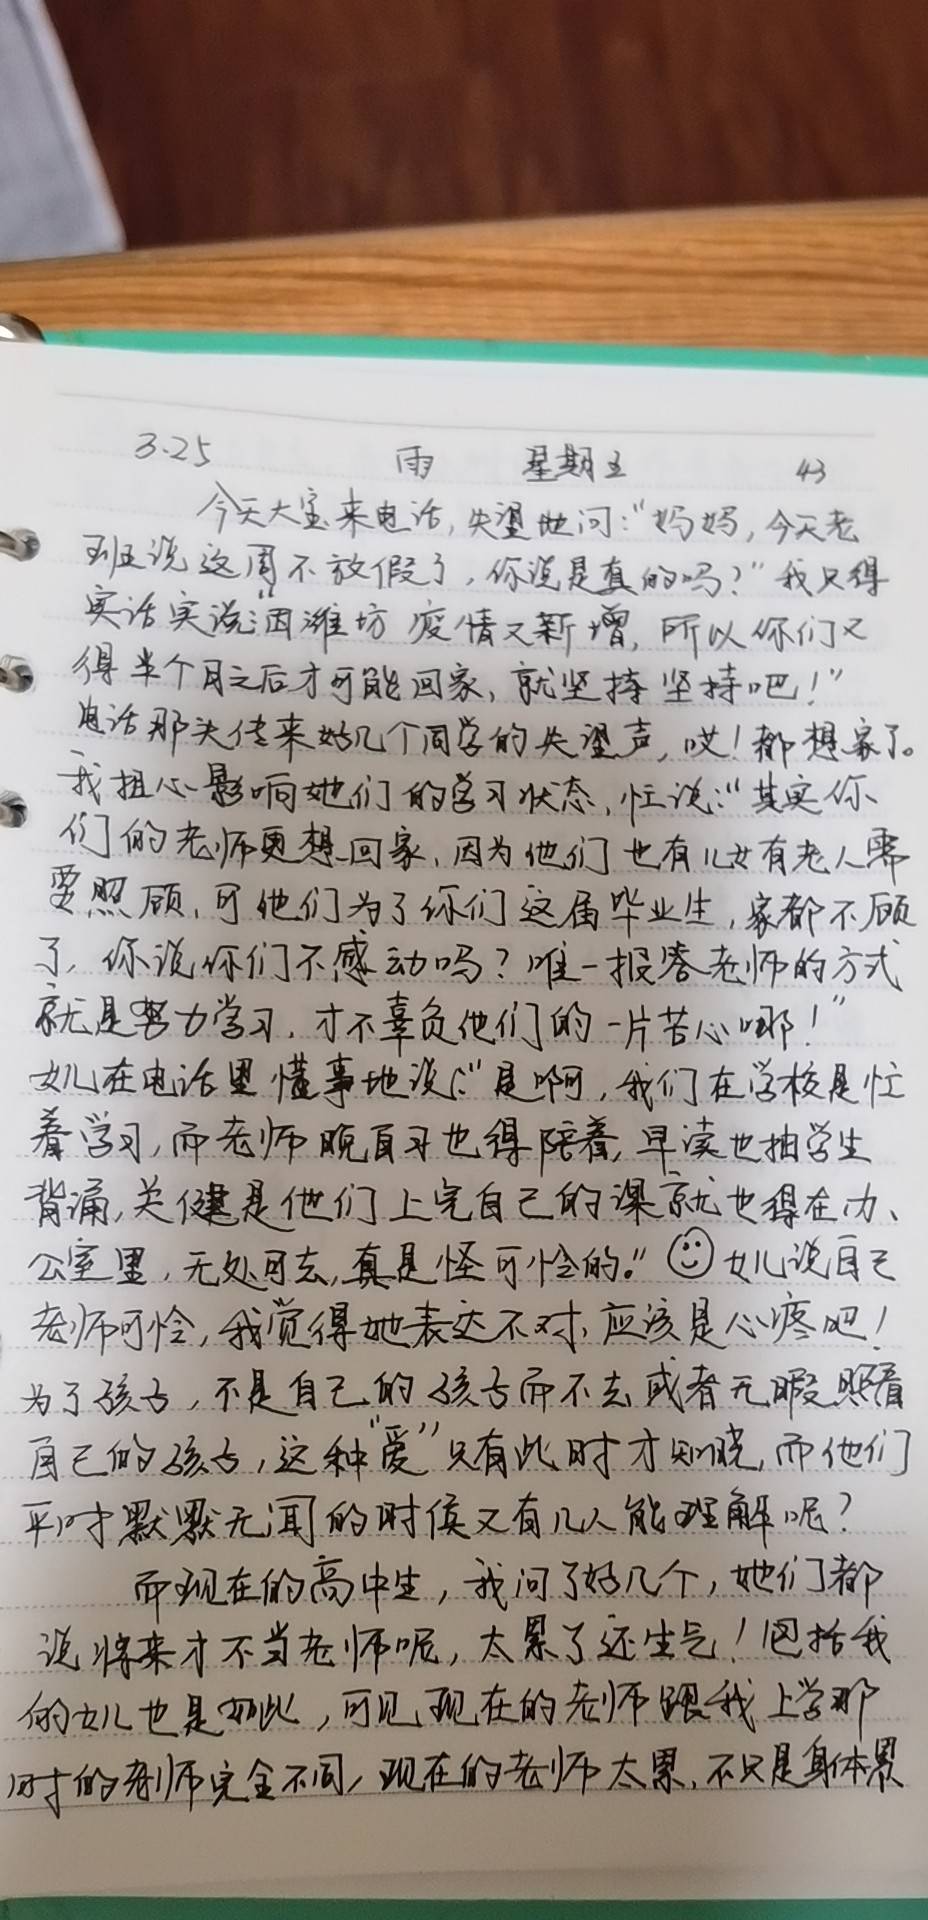 3.25 雨 星期五 43
今天大宝来电话,失望地问:“妈妈,今天老
班说这周不放假了,你说是真的吗?”我只得
实话实说:“因潍坊疫情又新增,所以你们又
得半个月之后才可能回家,就坚持坚持吧!”
电话那头传来好几个同学的失望声,哎!都想家了。
我担心影响她们的学习状态,忙说:“其实你
们的老师更想回家,因为他们也有儿女有老人需
要照顾,可他们为了你们这届毕业生,家都不顾
了,你说你们不感动吗?唯一报答老师的方式
就是努力学习,才不辜负他们的一片苦心哪!”
女儿在电话里懂事地说:“是啊,我们在学校是忙
着学习,而老师晚自习也得陪着,早读也抽学生
背诵,关健是他们上完自己的课就也得在办
公室里,无处可去,真是怪可怜的。”女儿说自己
老师可怜,我觉得她表达不对,应该是心疼吧!
为了孩子,不是自己的孩子而不去或者无暇照看
自己的孩子,这种“爱”只有此时才知晓,而他们
平时默默无闻的时候又有几人能理解呢?
而现在的高中生,我问了好几个,她们都
说将来才不当老师呢,太累了还生气!包括我
的女儿也是如此,可见现在的老师跟我上学那
时的老师完全不同,现在的老师太累,不只是身体累